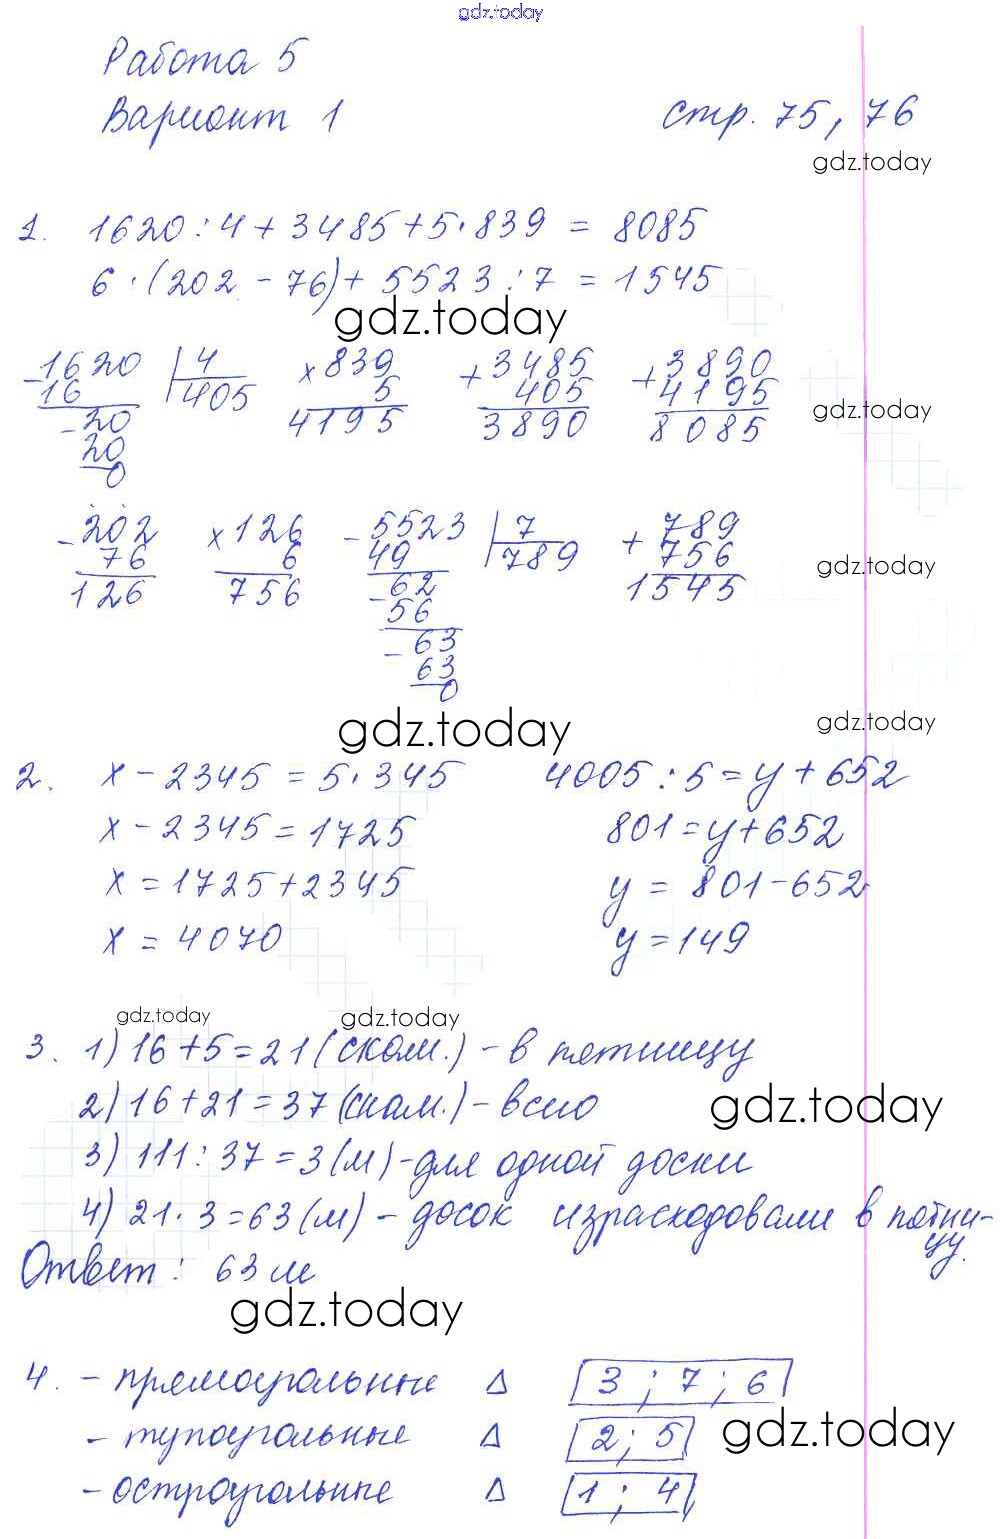 gdz.today
Работа 5
Вариант 1 стр. 75, 76
gdz.today
1. 1620 : 4 + 3485 + 5 · 839 = 8085
6 · (202 - 76) + 5523 : 7 = 1545
gdz.today
-1620 | 4 × 839 + 3485 + 3890
16 405 5 405 4195
-20 4195 3890 8085
20
0
gdz.today
-202 × 126 - 5523 | 7 + 789
76 6 49 789 756
126 756 -62 1545
56
-63
63
0
gdz.today
gdz.today gdz.today
2. x - 2345 = 5 · 345 4005 : 5 = y + 652
x - 2345 = 1725 801 = y + 652
x = 1725 + 2345 y = 801 - 652
x = 4070 y = 149
gdz.today gdz.today
3. 1) 16 + 5 = 21 (скам.) - в пятницу
2) 16 + 21 = 37 (скам.) - всего
gdz.today
3) 111 : 37 = 3 (м) - для одной доски
4) 21 · 3 = 63 (м) - досок израсходовали в пятни-
цу.
Ответ: 63 м
gdz.today
4. - прямоугольные Δ 3 ; 7 ; 6
- тупоугольные Δ 2 ; 5
gdz.today
- остроугольные Δ 1 ; 4